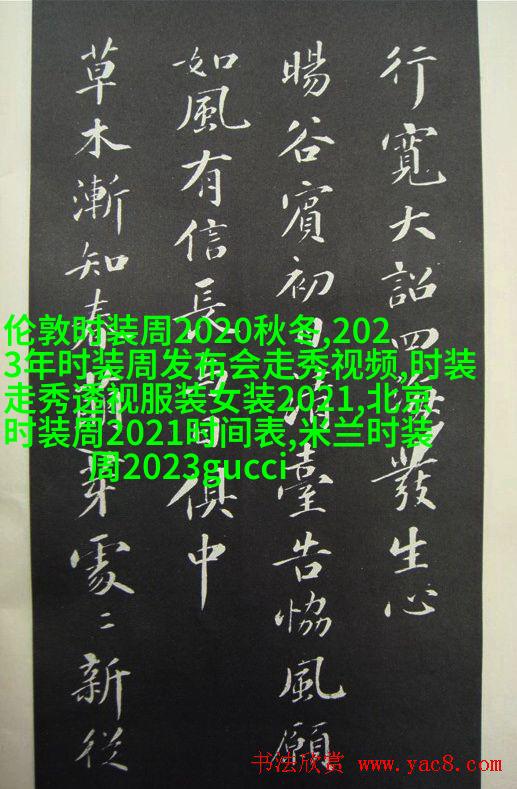 行寬大詔四海發生心
暘谷賓初日清臺告協風願
如風有信長與日俱中
草木漸知春萌芽處〻新從
伦敦时装周2020秋冬,202
3年时装周发布会走秀视频,时装
走秀透视服装女装2021,北京
时装周2021时间表,米兰时装
周2023gucci
书法欣赏
www.yac8.com